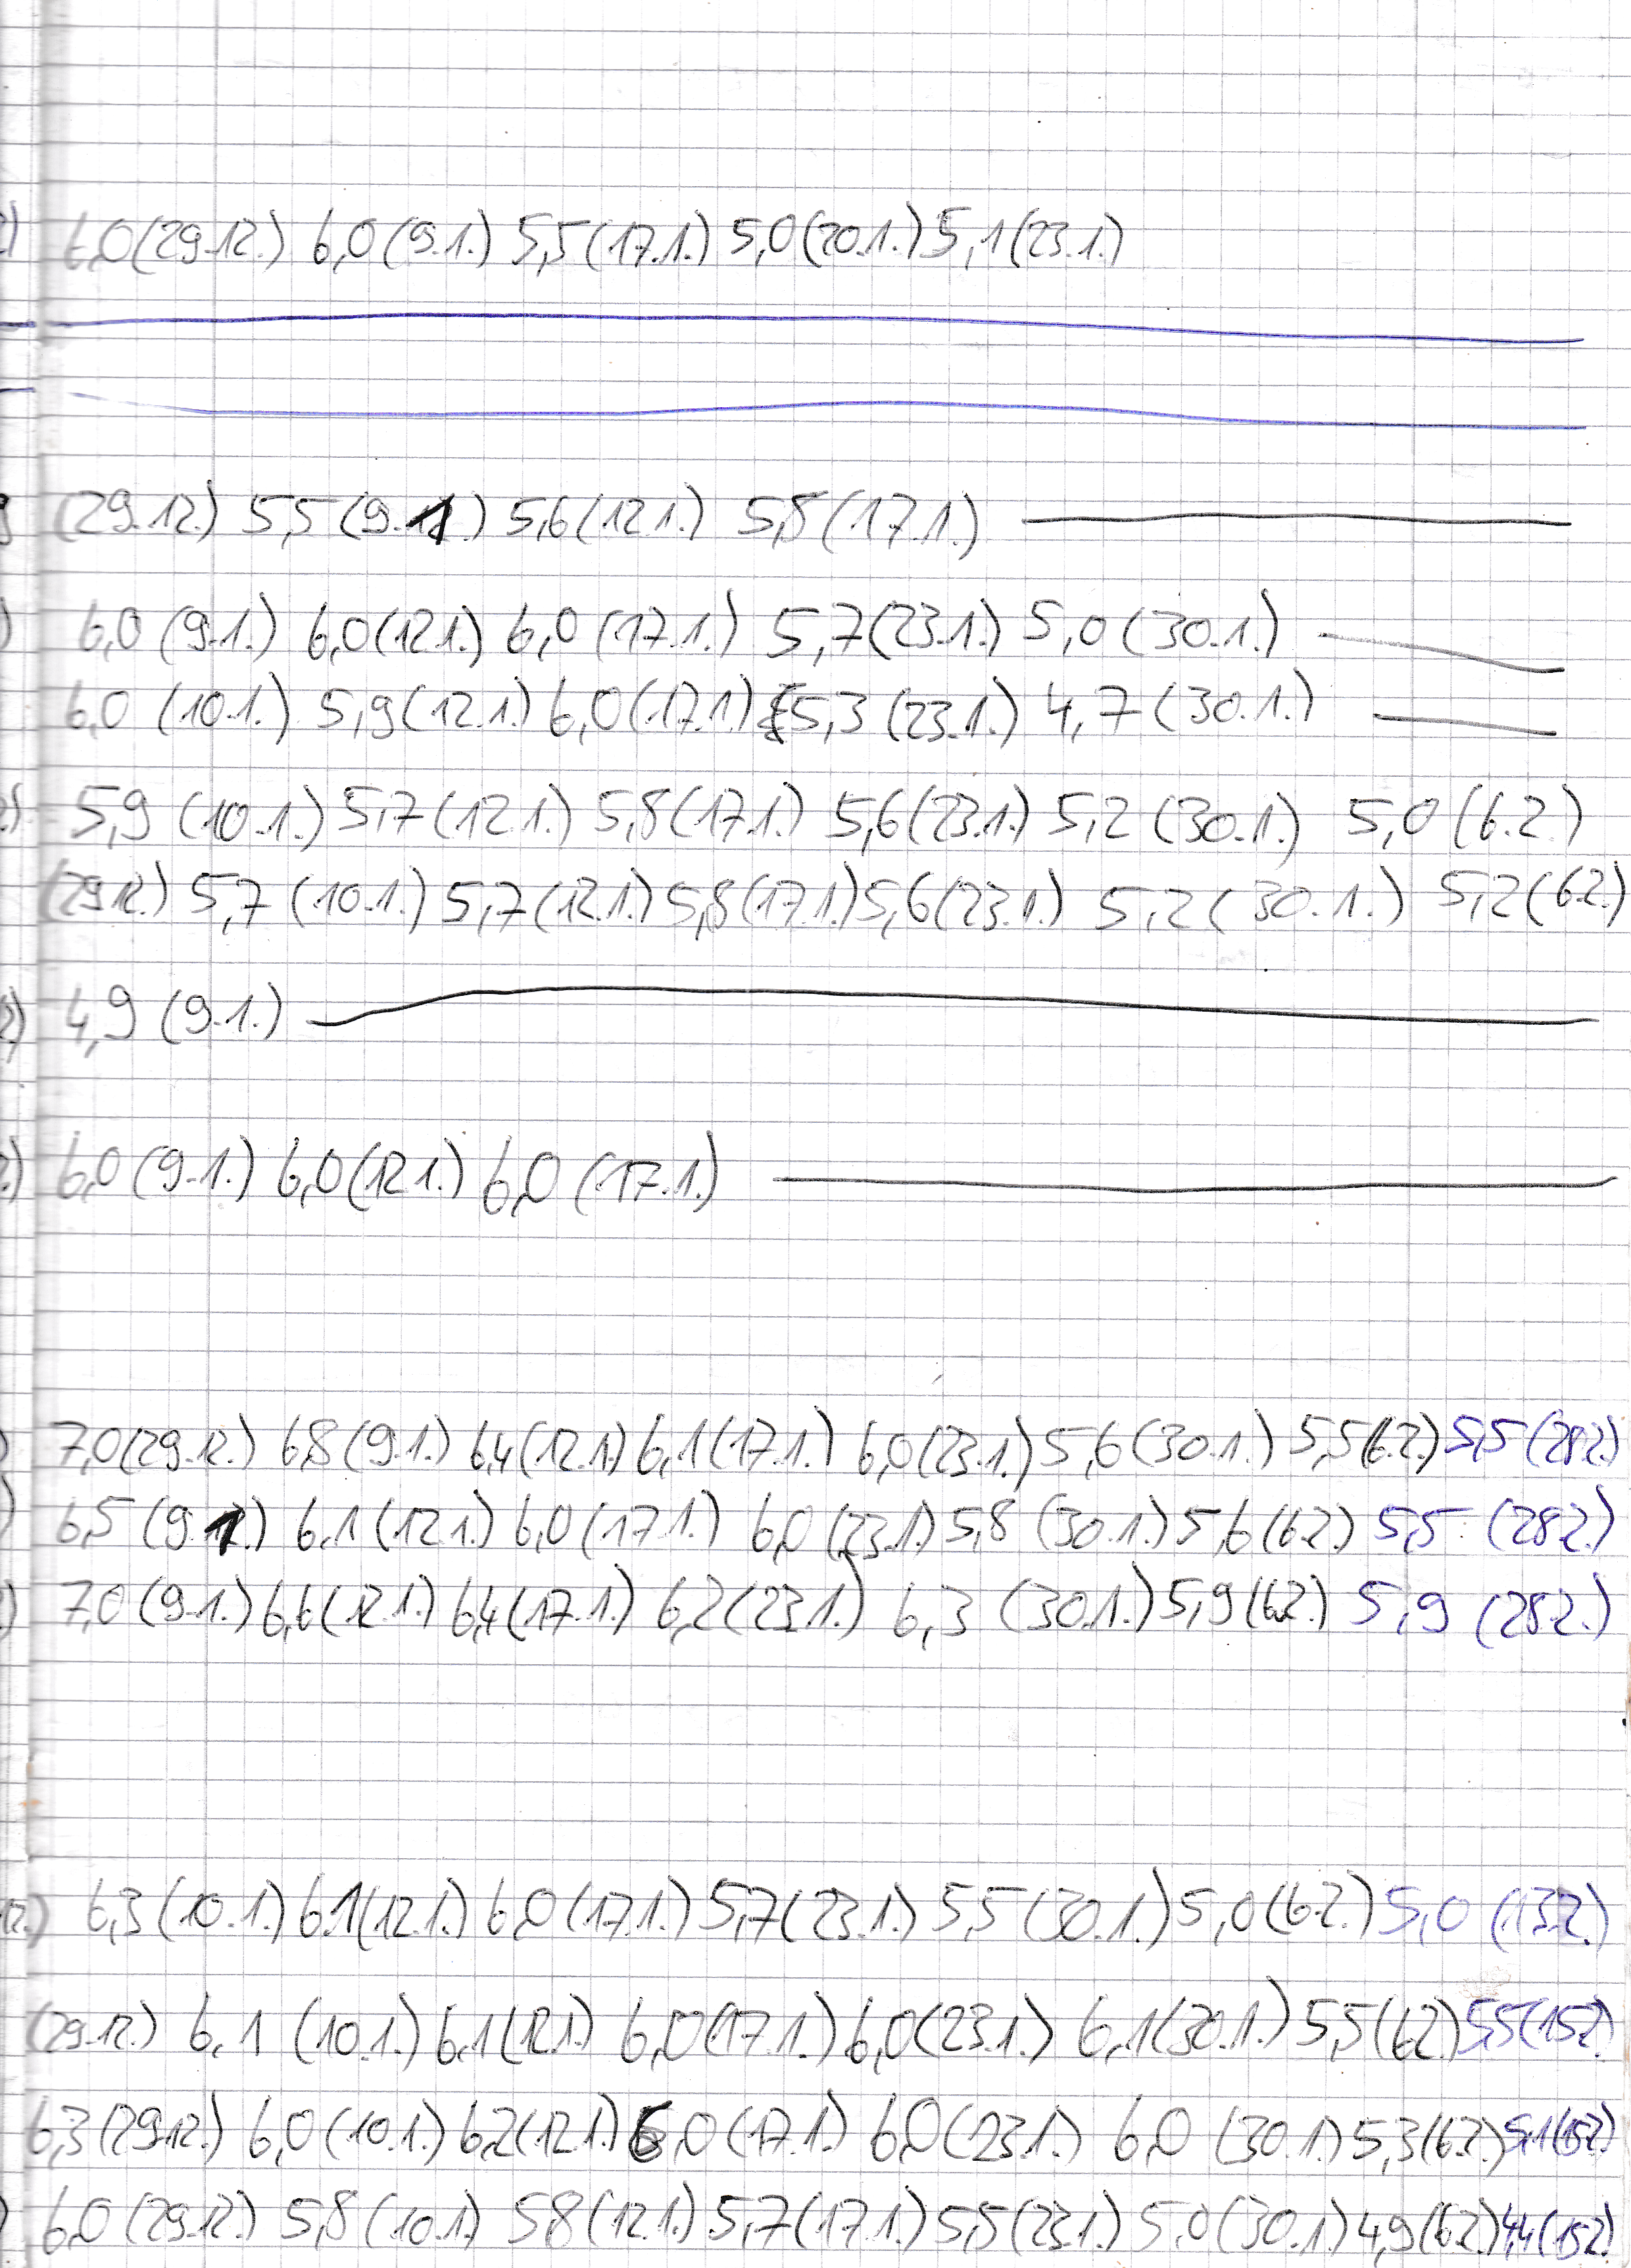 6,0 (29.12.) 6,0 (9.1.) 5,5 (17.1.) 5,0 (20.1.) 5,1 (23.1.)
(29.12.) 5,5 (9.1.) 5,6 (12.1.) 5,8 (17.1.)
6,0 (9.1.) 6,0 (12.1.) 6,0 (17.1.) 5,7 (23.1.) 5,0 (30.1.)
6,0 (10.1.) 5,9 (12.1.) 6,0 (17.1.) 5,3 (23.1.) 4,7 (30.1.)
5,9 (10.1.) 5,7 (12.1.) 5,8 (17.1.) 5,6 (23.1.) 5,2 (30.1.) 5,0 (6.2.)
(29.12.) 5,7 (10.1.) 5,7 (12.1.) 5,8 (17.1.) 5,6 (23.1.) 5,2 (30.1.) 5,2 (6.2.)
4,9 (9.1.)
6,0 (9.1.) 6,0 (12.1.) 6,0 (17.1.)
7,0 (29.12.) 6,8 (9.1.) 6,4 (12.1.) 6,1 (17.1.) 6,0 (23.1.) 5,6 (30.1.) 5,5 (6.2.) 5,5 (28.2.)
6,5 (9.1.) 6,1 (12.1.) 6,0 (17.1.) 6,0 (23.1.) 5,8 (30.1.) 5,6 (6.2.) 5,5 (28.2.)
7,0 (9.1.) 6,6 (12.1.) 6,4 (17.1.) 6,2 (23.1.) 6,3 (30.1.) 5,9 (6.2.) 5,9 (28.2.)
12.) 6,3 (10.1.) 6,1 (12.1.) 6,0 (17.1.) 5,7 (23.1.) 5,5 (30.1.) 5,0 (6.2.) 5,0 (13.2.)
(29.12.) 6,1 (10.1.) 6,1 (12.1.) 6,0 (17.1.) 6,0 (23.1.) 6,1 (30.1.) 5,5 (6.2.) 5,5 (15.2.)
6,3 (29.12.) 6,0 (10.1.) 6,2 (12.1.) 6,0 (17.1.) 6,0 (23.1.) 6,0 (30.1.) 5,3 (6.2.) 5,1 (15.2.)
6,0 (29.12.) 5,8 (10.1.) 5,8 (12.1.) 5,7 (17.1.) 5,5 (23.1.) 5,0 (30.1.) 4,9 (6.2.) 4,4 (15.2.)